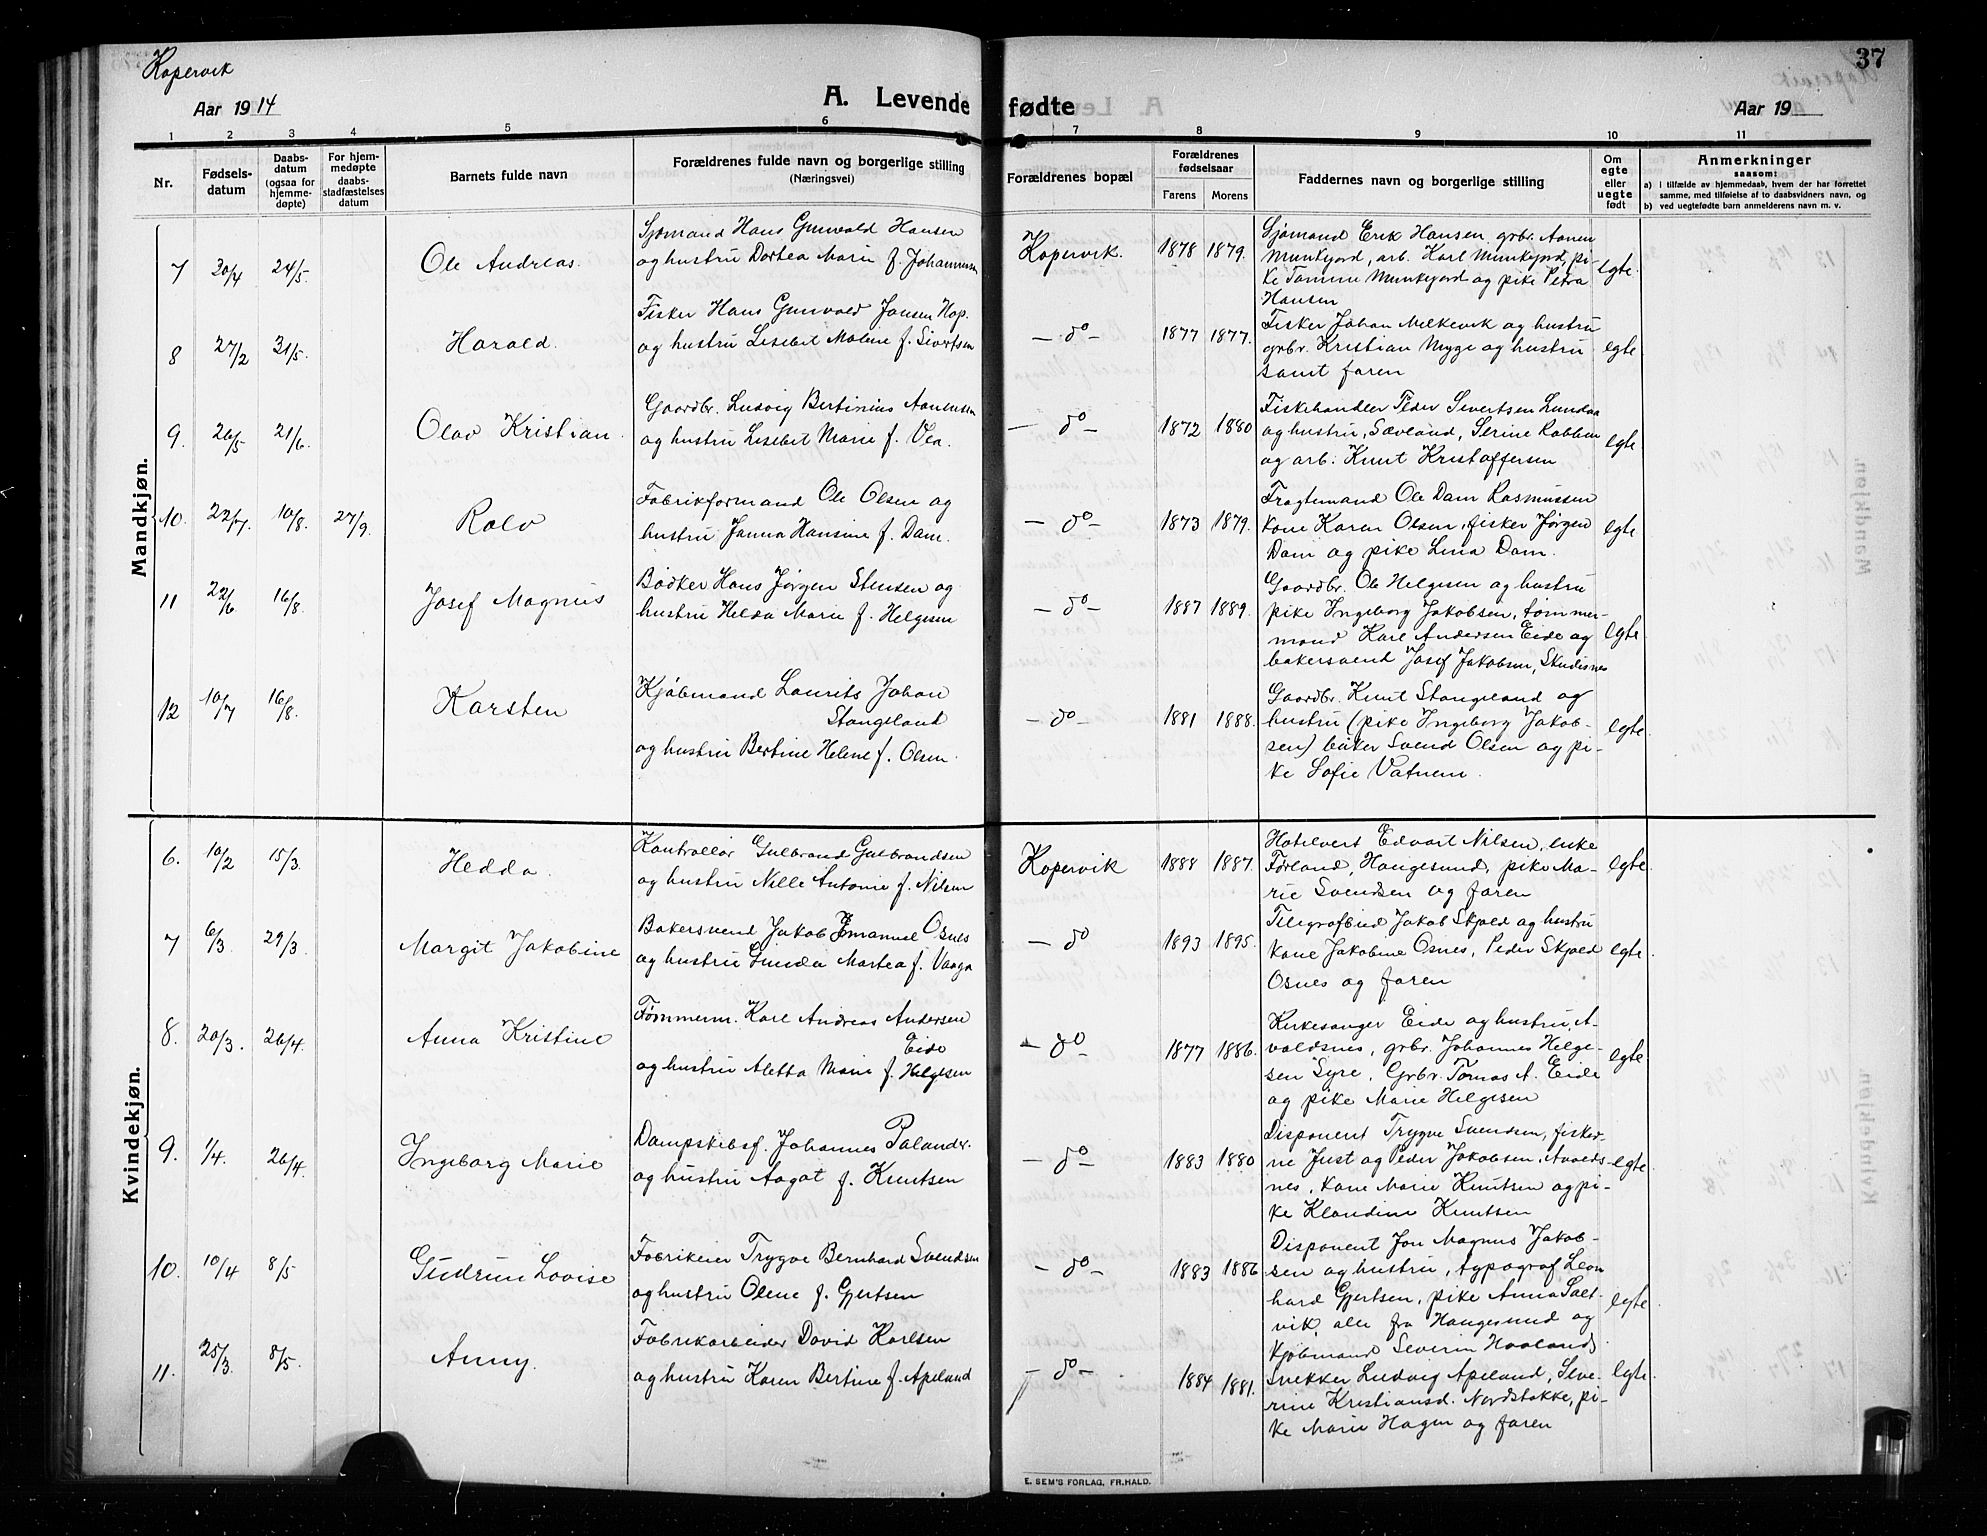 Kopervik
37
Aar 1914
A. Levende fødte
Aar 19
1 2 3 4 5 6 7 8 9 10 11
Nr.
Fødsels-datum
Daabs-datum (ogsaa for hjemme-døpte)
For hjem-medøpte daabs-stadfæstelses datum
Barnets fulde navn
Forældrenes fulde navn og borgerlige stilling
(Næringsvei)
Forældrenes bopæl
Forældrenes fødselsaar
Farens Morens
Faddernes navn og borgerlige stilling
Om egte eller uegte født
Anmerkninger
saasom:
a) i tilfælde av hjemmedaab, hvem der har forrettet
samme, med tilføielse af to daabsvidners navn, og
b) ved uegtefødte barn anmelderens navn m. v.
Mandkjøn.
7 20/4 24/5. Ole Andreas.
Sjømand Hans Gunvald Hansen
og hustru Dortea Marie f. Johannessen
Kopervik. 1878 1879.
Sjømand Erik Hansen, grbr. Aanen
Munkejord, arb. Karl Munkejord, pi-
ke Tomine Munkejord og pike Petra
Hansen
egte.
8 27/2 31/5. Harald.
Fisker Hans Gunvald Jansen Hop.
og hustru Lisebet Malene f. Sivertsen
- do - 1877 1877.
Fisker Johan Melkevik og hustru
grbr. Kristian Myge og hustru
samt faren
egte
9. 26/5 21/6. Olav Kristian.
Gaardbr. Ludvig Bertinius Aanensen
og hustru Lisebet Marie f. Vea.
- do - 1872 1880
Fiskehandler Peder Sivertsen Lundaa
og hustru, Sævland, Serine Robben
og arb. Knut Kristoffersen
egte
10. 22/7. 10/8. 27/9. Rolv
Fabrikformand Ole Olsen og
hustru Janna Hansine f. Dam.
- do - 1873 1879.
Fragtemand Ole Dam Rasmussen
kone Karen Olsen, fisker Jørgen
Dam og pike Lina Dam.
egte
11 22/6 16/8. Josef Magnus
Bødker Hans Jørgen Stensen og
hustru Helda Marie f. Helgesen
- do - 1887 1889.
Gaardbr. Ole Helgesen og hustru
pike Ingeborg Jakobsen, tømmer-
mand Karl Andersen Eide og
bakersvend Josef Jakobsen, Skudisnes
egte
12 10/7 16/8. Karsten
Kjøbmand Laurits Johan
Stangeland
og hustru Bertine Helene f. Olsen.
- do - 1881 1888.
Gaardbr. Knut Stangeland og
hustru (pike Ingeborg Jakob-
sen) baker Svend Olsen og pi-
ke Sofie Vatnem.
egte
Kvindekjøn.
6. 10/2 15/3. Hedda.
Kontrollør Gulbrand Gulbrandsen
og hustru Nille Antonie f. Nilsen
Kopervik 1888 1887.
Hotelvert Edvart Nilsen, enke
Førland, Haugesund, pike Ma-
rie Svendsen og faren
egte
7 6/3 29/3. Margit Jakobine
Bakersvend Jakob Emanuel Osnes
og hustru Linda Martea f. Vaaga
- do 1893 1895.
Telegrafbud Jakob Skjold og hustru
kone Jakobine Osnes, Peder Skjold
Osnes og faren
egte
8. 20/3. 26/4. Anna Kristine
Tømmerm. Karl Andreas Andersen
Eide
og hustru Aletta Marie f. Helgesen
- do 1877 1886.
Kirkesanger Eide og hustru, A-
valdsnes, grbr. Johannes Helge-
sen Syre, Grbr. Tomas A. Eide
og pike Marie Helgesen
egte
9. 1/4. 26/4. Ingeborg Marie
Dampskibsf. Johannes Palander.
og hustru Aagot f. Knutsen
- do - 1883 1880
Disponent Trygve Svendsen, fisker-
ne Just og Peder Jakobsen, Avalds-
nes, kone Marie Knutsen og pi-
ke Klaudine Knutsen
egte
10. 10/4 8/5 Gudrun Lovise
Fabrikeier Trygve Bernhard Svendsen
og hustru Olene f. Gjertsen
- do - 1883 1886
Disponent Jon Magnus Jakob-
sen og hustru, typograf Leon
hard Gjertsen, pike Anna Salt-
vik, alle fra Haugesund og
Kjøbmand Severin Haaland,
egte
11. 25/3 8/5. Anny.
Fabrikarbeider David Karlsen
og hustru Karen Bertine f. Apeland
- do - 1884 1881.
Snekker Ludvig Apeland, Seve-
rine Kristiansd. Nordstokke, pi-
ke Marie Hagen og faren
egte
E. SEM'S FORLAG, FR.HALD.